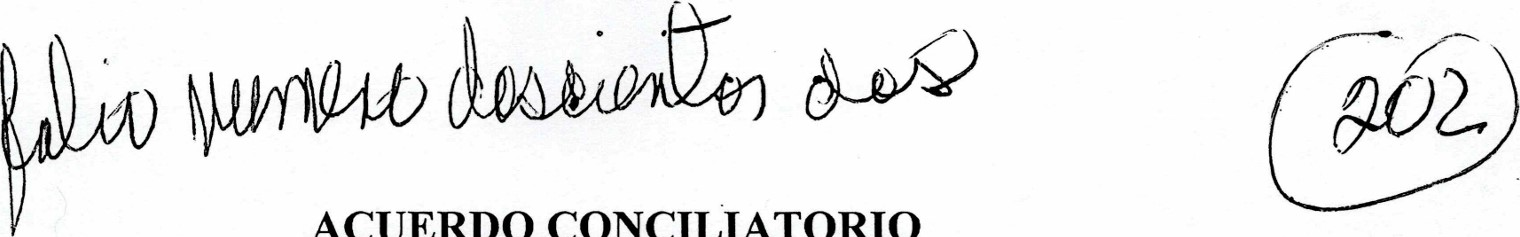 folio numero doscientos dos
202
ACUERDO CONCILIATORIO